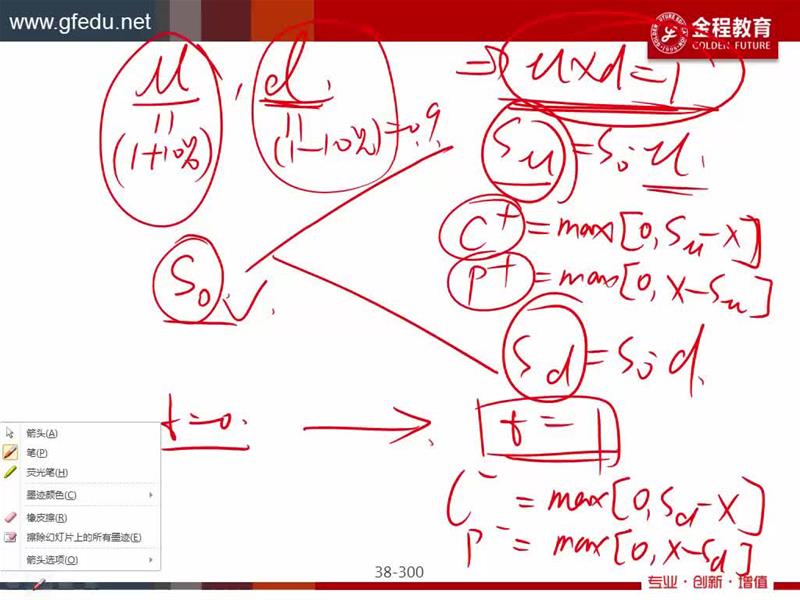 www.gfedu.net
金程教育
GOLDEN FUTURE
u , d. ⇒ u×d=1
(1+10%) (1-10%)=0.9
Su=S0·u.
C+=max[0, Su-X]
P+=max[0, X-Su]
S0
Sd=S0·d.
t=0. t=1
C-=max[0, Sd-X]
P-=max[0, X-Sd]
箭头(A)
笔(P)
荧光笔(H)
墨迹颜色(C)
橡皮擦(R)
擦除幻灯片上的所有墨迹(E)
箭头选项(O)
38-300
专业·创新·增值